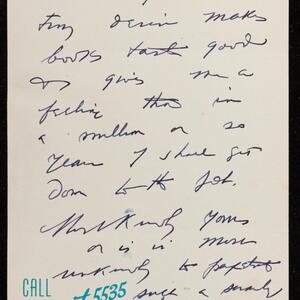 makes
books good
& gives me a
feeling that in
a million or so
years I shall get
down to the job.
Most Kindly Yours
or is it more
unkindly to
such a
CALL
#5535